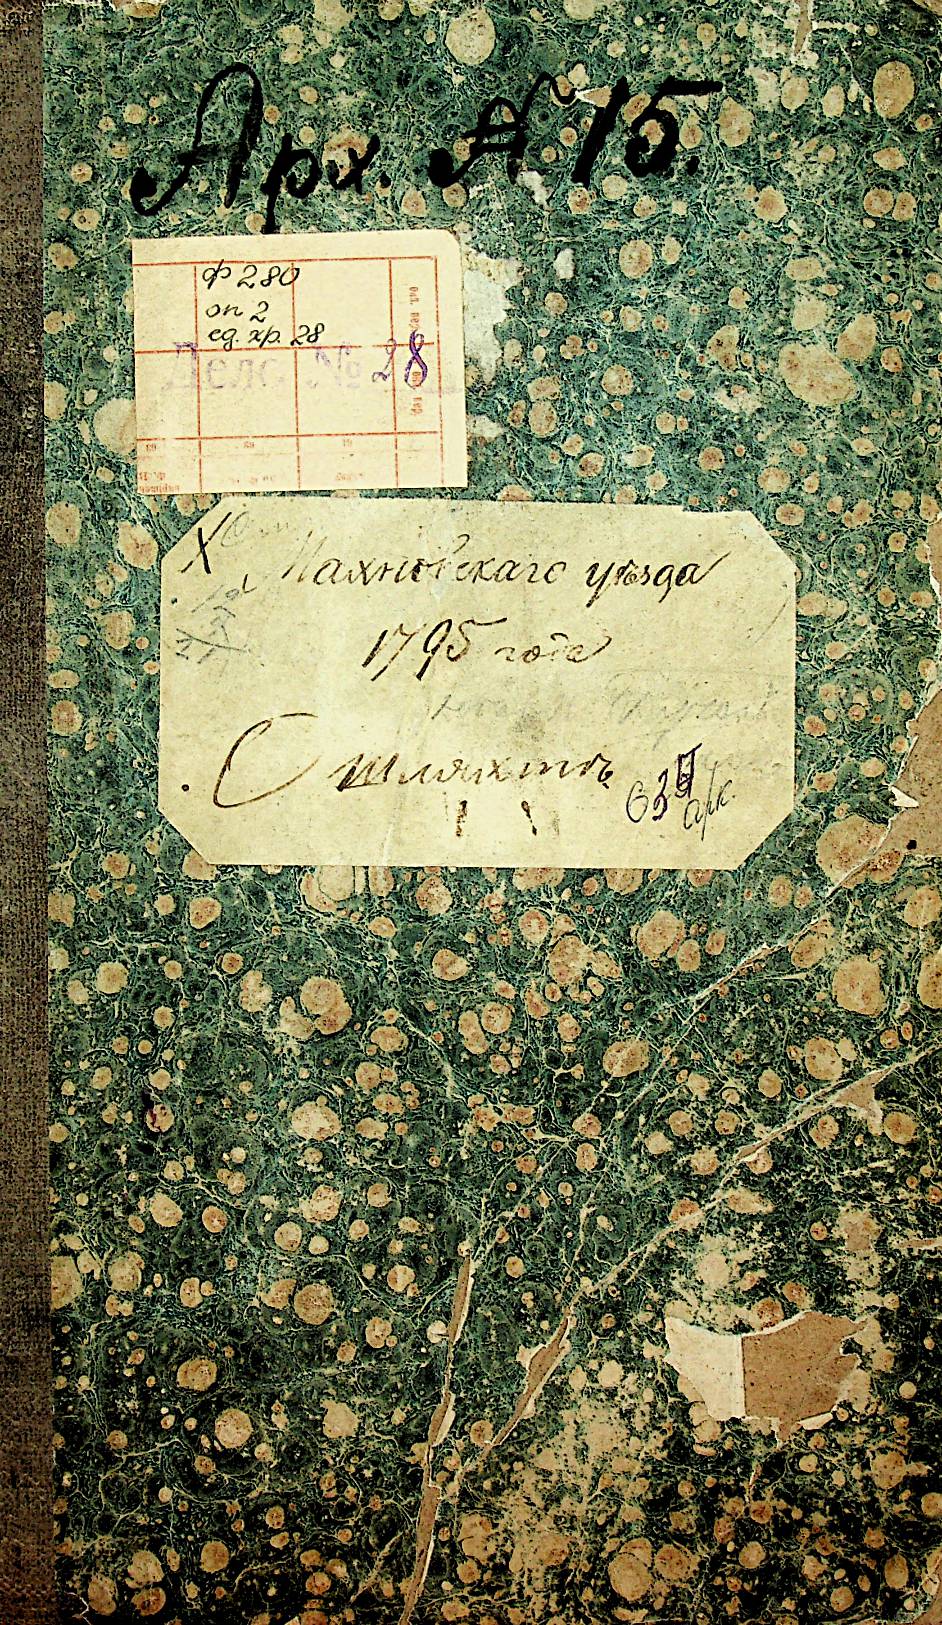 Арх. № 15.
ф 280
оп 2
ед. хр. 28
Дело № 28
Махновскаго уѣзда
1795 года
О шляхтѣ
арк.